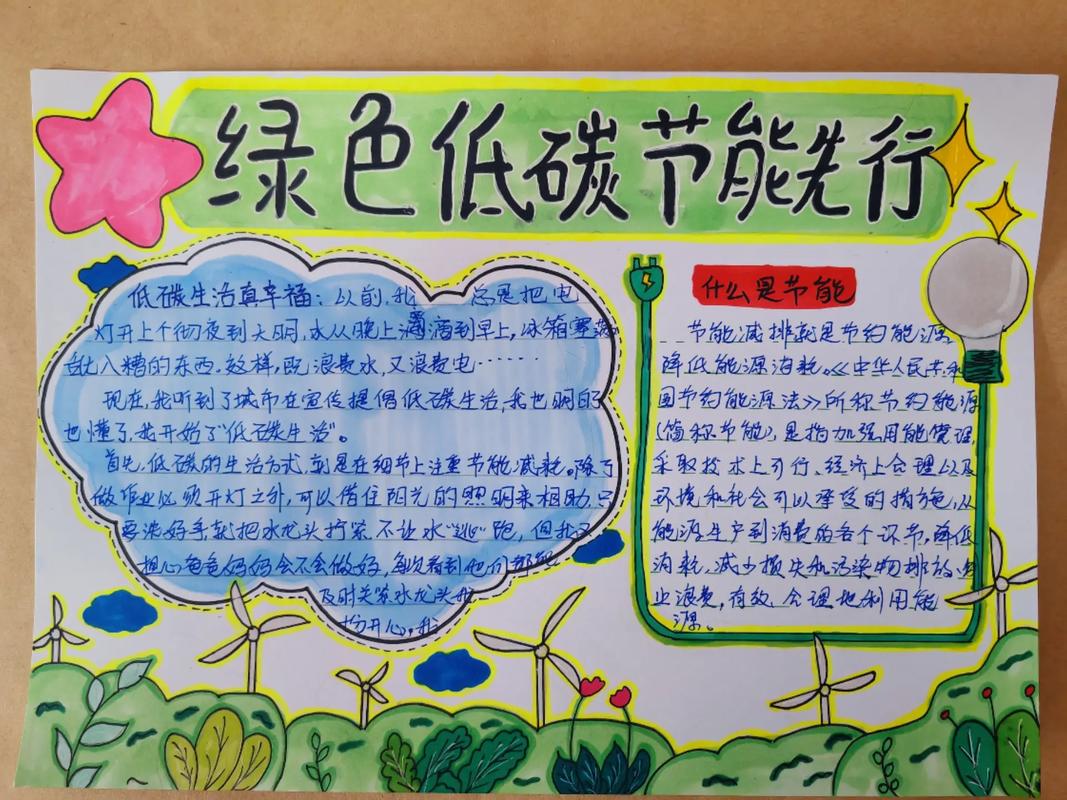 绿色低碳节能先行
低碳生活真幸福：以前，我 总是把电
灯开上个彻夜到大明，水从晚上滴滴到早上，冰箱塞
入糟的东西。这样，既浪费水，又浪费电……
现在，我听到了城市在宣传提倡低碳生活，我也明白了
也懂了，我开始了“低碳生活”。
首先，低碳的生活方式，就是在细节上注重节能减耗。除了
做作业必须开灯之外，可以借住阳光的照明来相助。只
要洗好手，就把水龙头拧紧，不让水“逃”跑，但我又
担心爸爸妈妈会不会做好，每次看到他们都能
及时关紧水龙头我
开心，我
什么是节能
节能减排就是节约能源，
降低能源消耗。《中华人民共和
国节约能源法》所称节约能源
（简称节能），是指加强用能管理，
采取技术上可行、经济上合理以及
环境和社会可以承受的措施，从
能源生产到消费的各个环节，降低
消耗、减少损失和污染物排放、制
止浪费，有效、合理地利用能
源。